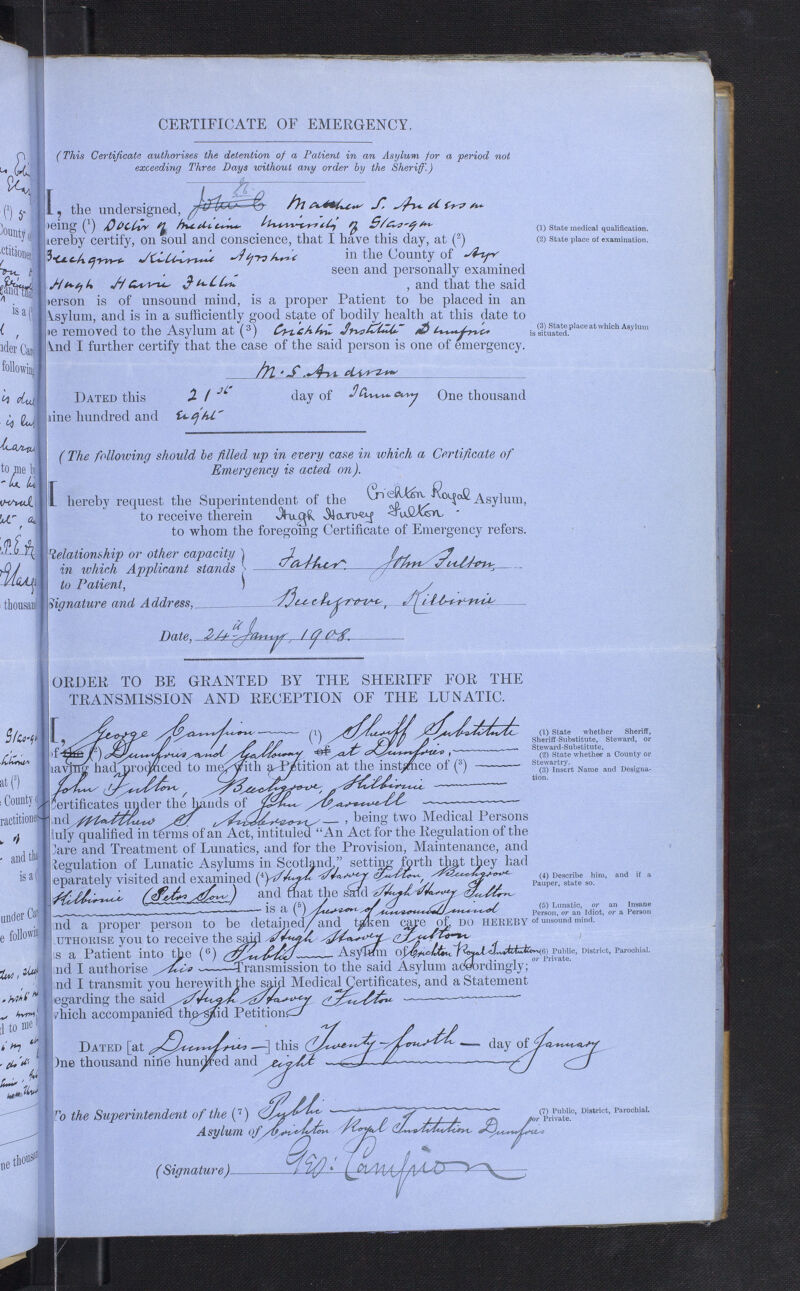 CERTIFICATE OF EMERGENCY.
(This Certificate authorises the detention of a Patient in an Asylum for a period not
exceeding Three Days without any order by the Sheriff.)
I, the undersigned, John C Matthew S. Anderson
being (1) Doctor of Medicine University of Glasgow
hereby certify, on soul and conscience, that I have this day, at (2)
Beechgrove Kilbirnie Ayrshire in the County of Ayr
seen and personally examined
Hugh Harvie Fulton, and that the said
person is of unsound mind, is a proper Patient to be placed in an
Asylum, and is in a sufficiently good state of bodily health at this date to
be removed to the Asylum at (3) Crichton Institute Dumfries
And I further certify that the case of the said person is one of emergency.
M. S. Anderson
DATED this 21st day of January One thousand
nine hundred and Eight
(1) State medical qualification.
(2) State place of examination.
(3) State place at which Asylum
is situated.
(The following should be filled up in every case in which a Certificate of
Emergency is acted on).
I hereby request the Superintendent of the Crichton Royal Asylum,
to receive therein Hugh Harvey Fulton.
to whom the foregoing Certificate of Emergency refers.
Relationship or other capacity
in which Applicant stands
to Patient,
Father. John Fulton,
Signature and Address, Beechgrove, Kilbirnie
Date, 24th Jany. 1908.
ORDER TO BE GRANTED BY THE SHERIFF FOR THE
TRANSMISSION AND RECEPTION OF THE LUNATIC.
I, George Campion (1) Sheriff Substitute
of the (2) Dumfries and Galloway of at Dumfries,
having had produced to me, with a Petition at the instance of (3)
John Fulton, Beechgrove, Kilbirnie
Certificates under the hands of John Carswell
and Matthew S Anderson, being two Medical Persons
duly qualified in terms of an Act, intituled "An Act for the Regulation of the
Care and Treatment of Lunatics, and for the Provision, Maintenance, and
Regulation of Lunatic Asylums in Scotland," setting forth that they had
separately visited and examined (4) Hugh Harvey Fulton, Beechgrove
Kilbirnie (Petrs Son) and that the said Hugh Harvey Fulton
is a (5) person of unsound mind
and a proper person to be detained and taken care of, DO HEREBY
AUTHORISE you to receive the said Hugh Harvey Fulton
as a Patient into the (6) Public Asylum of Crichton Royal Institution
and I authorise his Transmission to the said Asylum accordingly;
and I transmit you herewith the said Medical Certificates, and a Statement
regarding the said Hugh Harvey Fulton
which accompanied the said Petition.
DATED [at Dumfries] this Twenty-fourth day of January
One thousand nine hundred and eight
To the Superintendent of the (7) Public
Asylum of Crichton Royal Institution Dumfries
(Signature) Geo: Campion
(1) State whether Sheriff,
Sheriff-Substitute, Steward, or
Steward-Substitute.
(2) State whether a County or
Stewartry.
(3) Insert Name and Designa-
tion.
(4) Describe him, and if a
Pauper, state so.
(5) Lunatic, or an Insane
Person, or an Idiot, or a Person
of unsound mind.
(6) Public, District, Parochial.
or Private.
(7) Public, District, Parochial.
or Private.